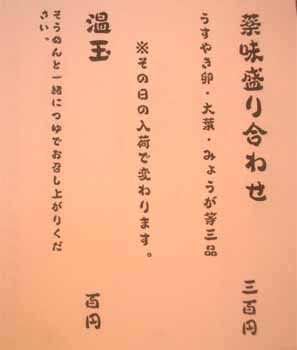 薬味盛り合わせ 三百円
うすやき卵・大葉・みょうが等三品
※その日の入荷で変わります。
温玉 百円
そうめんと一緒につゆでお召し上がりくだ
さい。